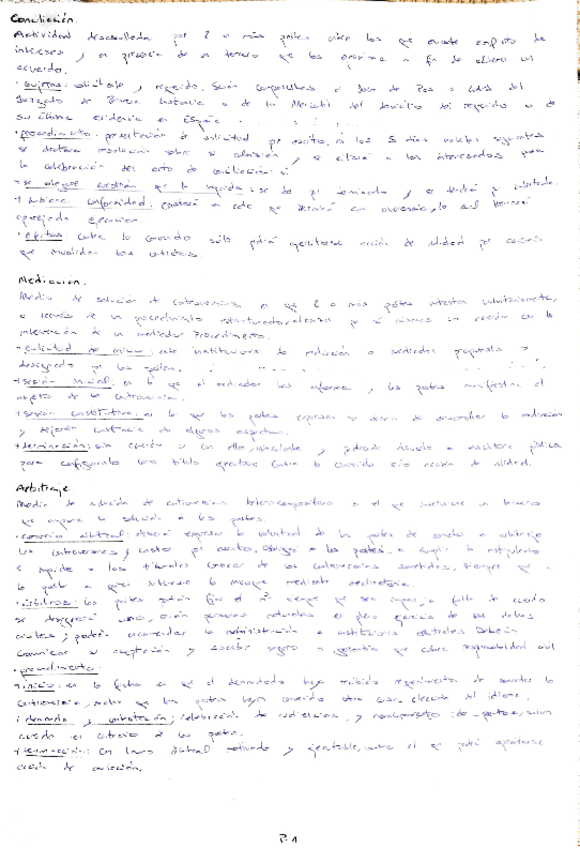 Conciliación.
Actividad desarrollada por 2 o más partes entre las que existe conflicto de
intereses, en presencia de un tercero que las aproxima a fin de obtener un
acuerdo.
· sujetos: solicitante y requerido. Serán competentes el Juez de Paz o LAJ del
Juzgado de Primera Instancia o de lo Mercantil del domicilio del requerido o de
su última residencia en España
· procedimiento: presentación de solicitud por escrito, en los 5 días hábiles siguientes
se dictará resolución sobre su admisión, y se citará a los interesados para
la celebración del acto de conciliación
cuestión que lo impida: se da por terminado y se tendrá por intentada.
conformidad: constará en acta que se terminó con avenencia, lo cual tendrá
aparejada ejecución
· efectos: contra lo convenido sólo podrá ejercitarse acción de nulidad por causas
que invaliden los contratos.
Mediación.
Medio de solución de controversias en que 2 o más partes intentan voluntariamente,
a través de un procedimiento estructurado, alcanzar por sí mismas un acuerdo con la
intervención de un mediador. Procedimiento.
solicitud de inicio: ante instituciones de mediación o mediador propuesto o
designado por las partes.
sesión inicial: en la que el mediador les informa, las partes manifiestan el
objeto de la controversia.
sesión constitutiva: en la que las partes expresan su deseo de desarrollar la mediación
y dejarán constancia de algunos aspectos.
terminación: con acuerdo o sin ello, vinculante y podrán elevarlo a escritura pública
para configurarlo como título ejecutivo. Contra lo convenido sólo acción de nulidad.
Arbitraje
Medio de solución de controversias heterocompositivo en el que interviene un tercero
que impone la solución a las partes.
· convenio arbitral: deberá expresar la voluntad de las partes de someter a arbitraje
las controversias y constar por escrito. Obliga a las partes a cumplir lo estipulado
e impide a los tribunales conocer de las controversias sometidas, siempre que
la parte a quien interese lo invoque mediante declinatoria.
· árbitros: las partes podrán fijar el nº siempre que sea impar, a falta de acuerdo
se designará uno, serán personas naturales en pleno ejercicio de sus derechos
civiles; podrán encomendar la administración a instituciones arbitrales. Deberán
comunicar su aceptación y suscribir seguro o garantía que cubra responsabilidad civil
· procedimiento:
inicio: en la fecha en que el demandado haya recibido requerimiento de someter la
controversia, salvo que las partes hayan convenido otra cosa. elección del idioma.
demanda y contestación; celebración de audiencias, y nombramiento de peritos, salvo
acuerdo en contrario de las partes.
terminación: con laudo arbitral motivado y ejecutable, contra el que podrá ejercitarse
acción de anulación.
P.1